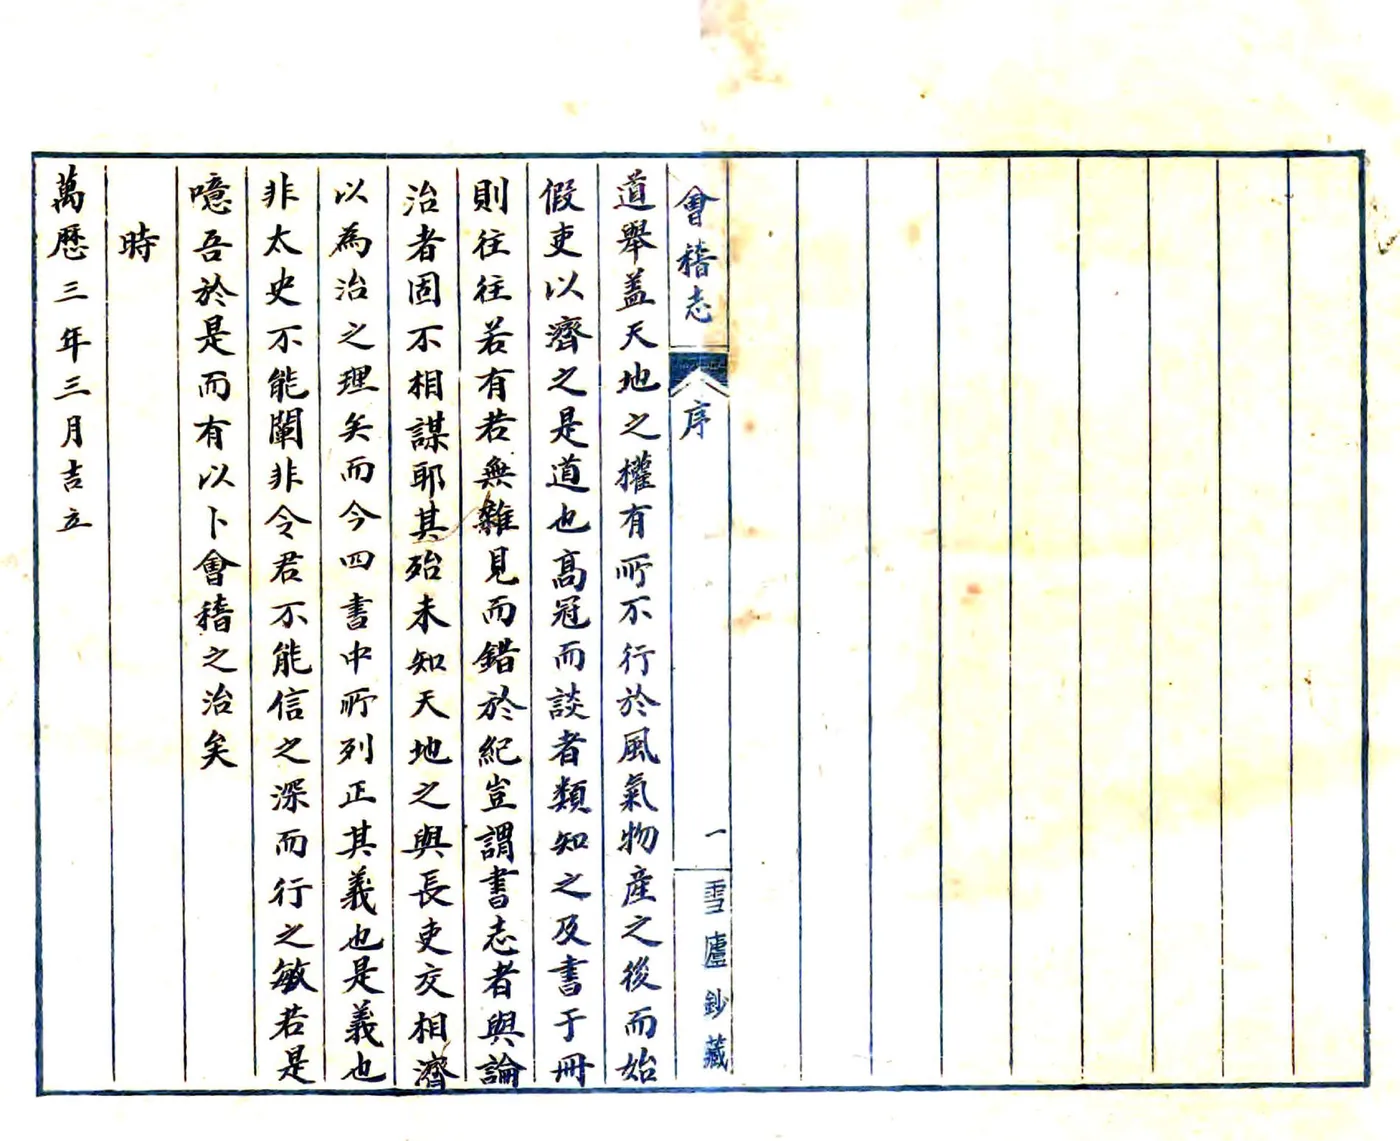 會稽志
序
一
雪廬鈔藏
道舉盖天地之權有所不行於風氣物產之後而始
假吏以濟之是道也高冠而談者類知之及書于冊
則往往若有若無雜見而錯於紀豈謂書志者與論
治者固不相謀耶其殆未知天地之與長吏交相濟
以為治之理矣而今四書中所列正其義也是義也
非太史不能闡非令君不能信之深而行之敏若是
噫吾於是而有以卜會稽之治矣
時
萬歷三年三月吉立